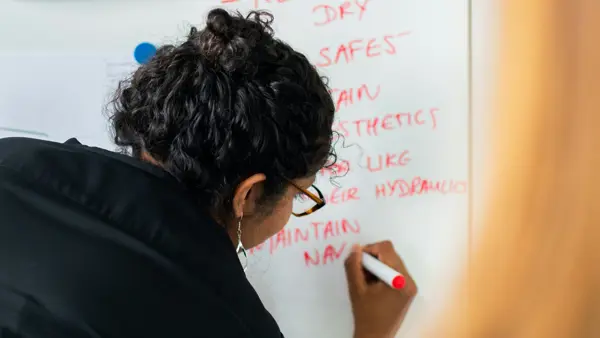 DRY
SAFES-
TAIN
STHETICS
LIKE
EIR HYDRAULICS
MAINTAIN
NAV